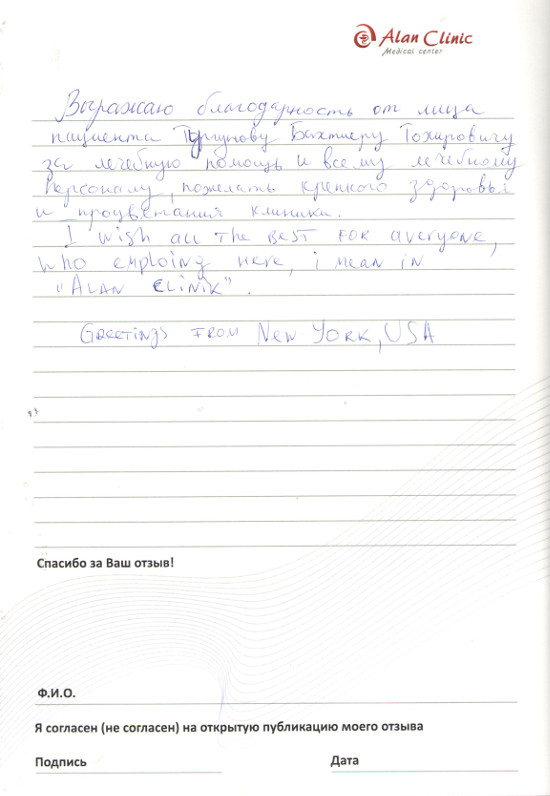 Alan Clinic
Medical center
Выражаю благодарность от лица
пациента Тургунову Бахтиеру Тохировичу
за лечебную помощь и всему лечебному
персоналу, пожелать крепкого здоровья
и процветания клиники.
I wish all the best for averyone,
who emploing here, i mean in
"Alan clinik".
Greetings from New York, USA
Спасибо за Ваш отзыв!
Ф.И.О.
Я согласен (не согласен) на открытую публикацию моего отзыва
Подпись Дата